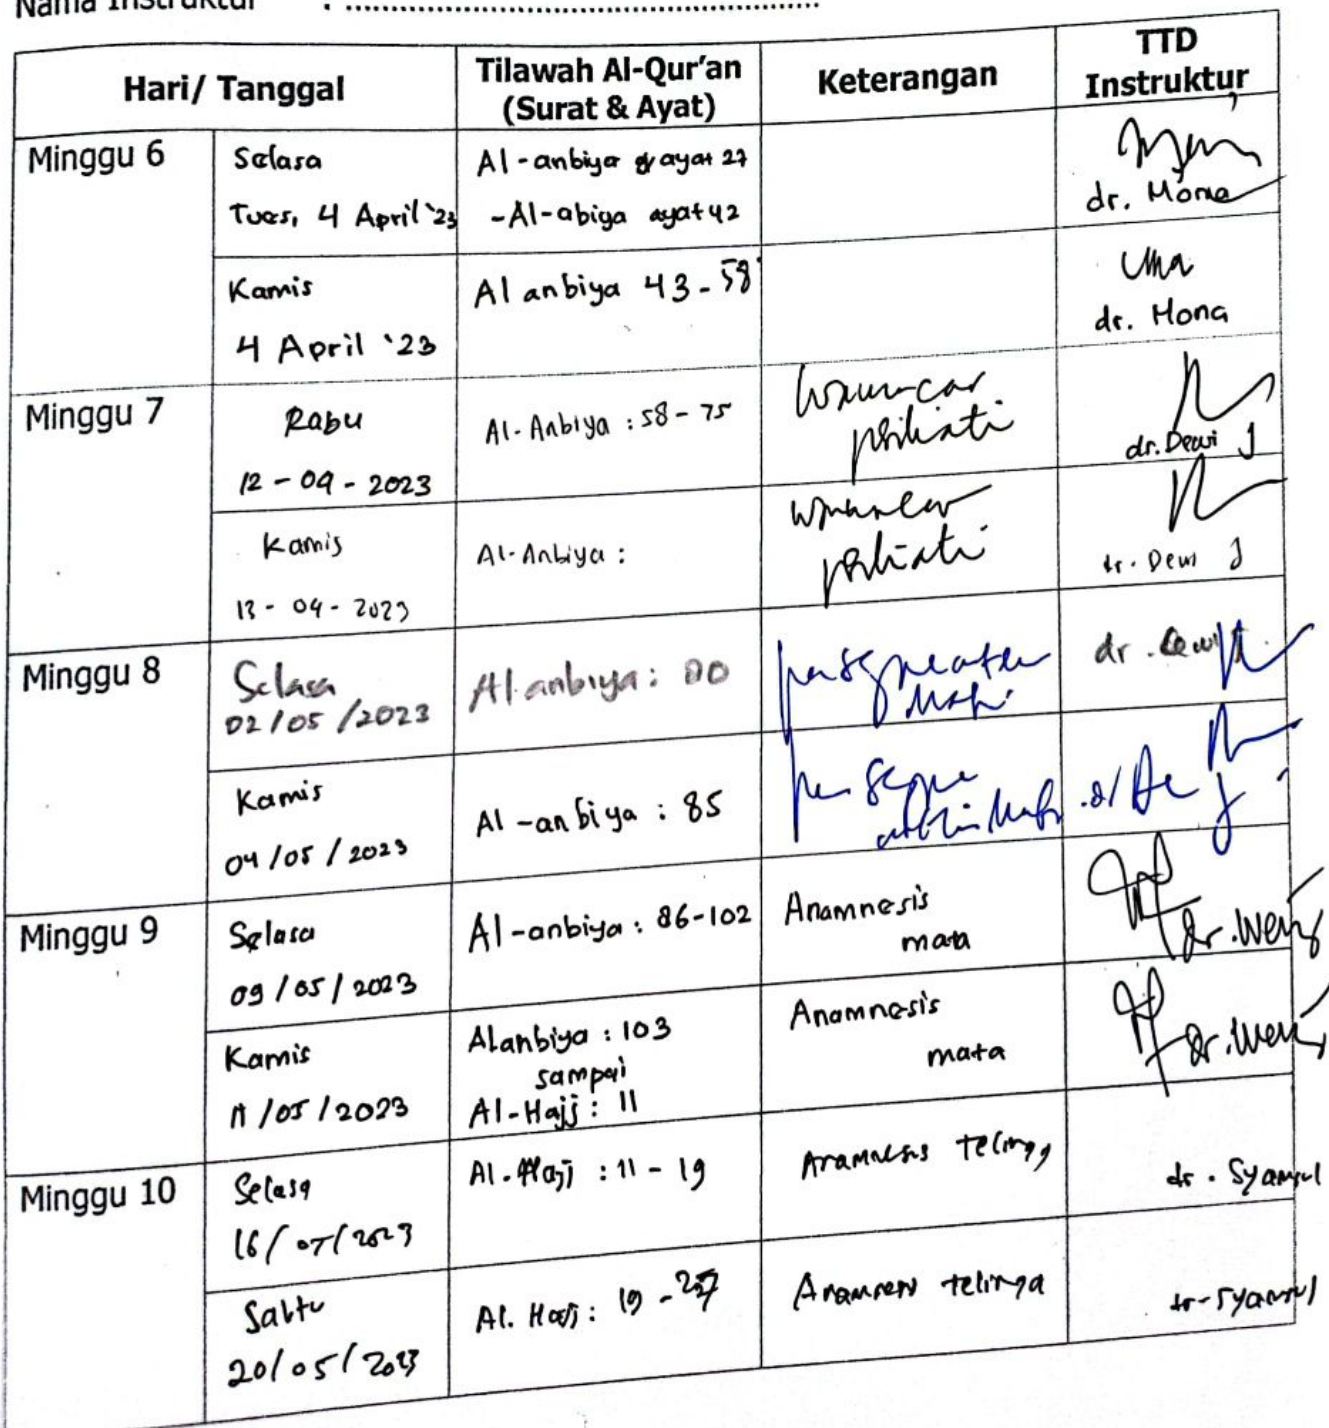 Nama Instruktur : ..................................................
Hari/ Tanggal
Tilawah Al-Qur'an
(Surat & Ayat)
Keterangan
TTD
Instruktur
Minggu 6
Selasa
Tues, 4 April '23
Al-anbiya ayat 27
-Al-abiya ayat 42
dr. Mona
Kamis
4 April '23
Al anbiya 43-58
dr. Mona
Minggu 7
Rabu
12-04-2023
Al-Anbiya : 58-75
dr. Dewi J
Kamis
13-04-2023
Al-Anbiya :
dr. Dewi J
Minggu 8
Selasa
02/05/2023
Al anbiya : 80
dr. Dewi J
Kamis
04/05/2023
Al-anbiya : 85
Minggu 9
Selasa
09/05/2023
Al-anbiya : 86-102
Anamnesis
mata
Kamis
11/05/2023
Alanbiya : 103
sampai
Al-Hajj : 11
Anamnesis
mata
Minggu 10
Selasa
16/05/2023
Al-Hajj : 11-19
Anamnesis telinga
dr. Syamsul
Sabtu
20/05/2023
Al. Hajj : 19-27
Anamnesis telinga
dr. Syamsul